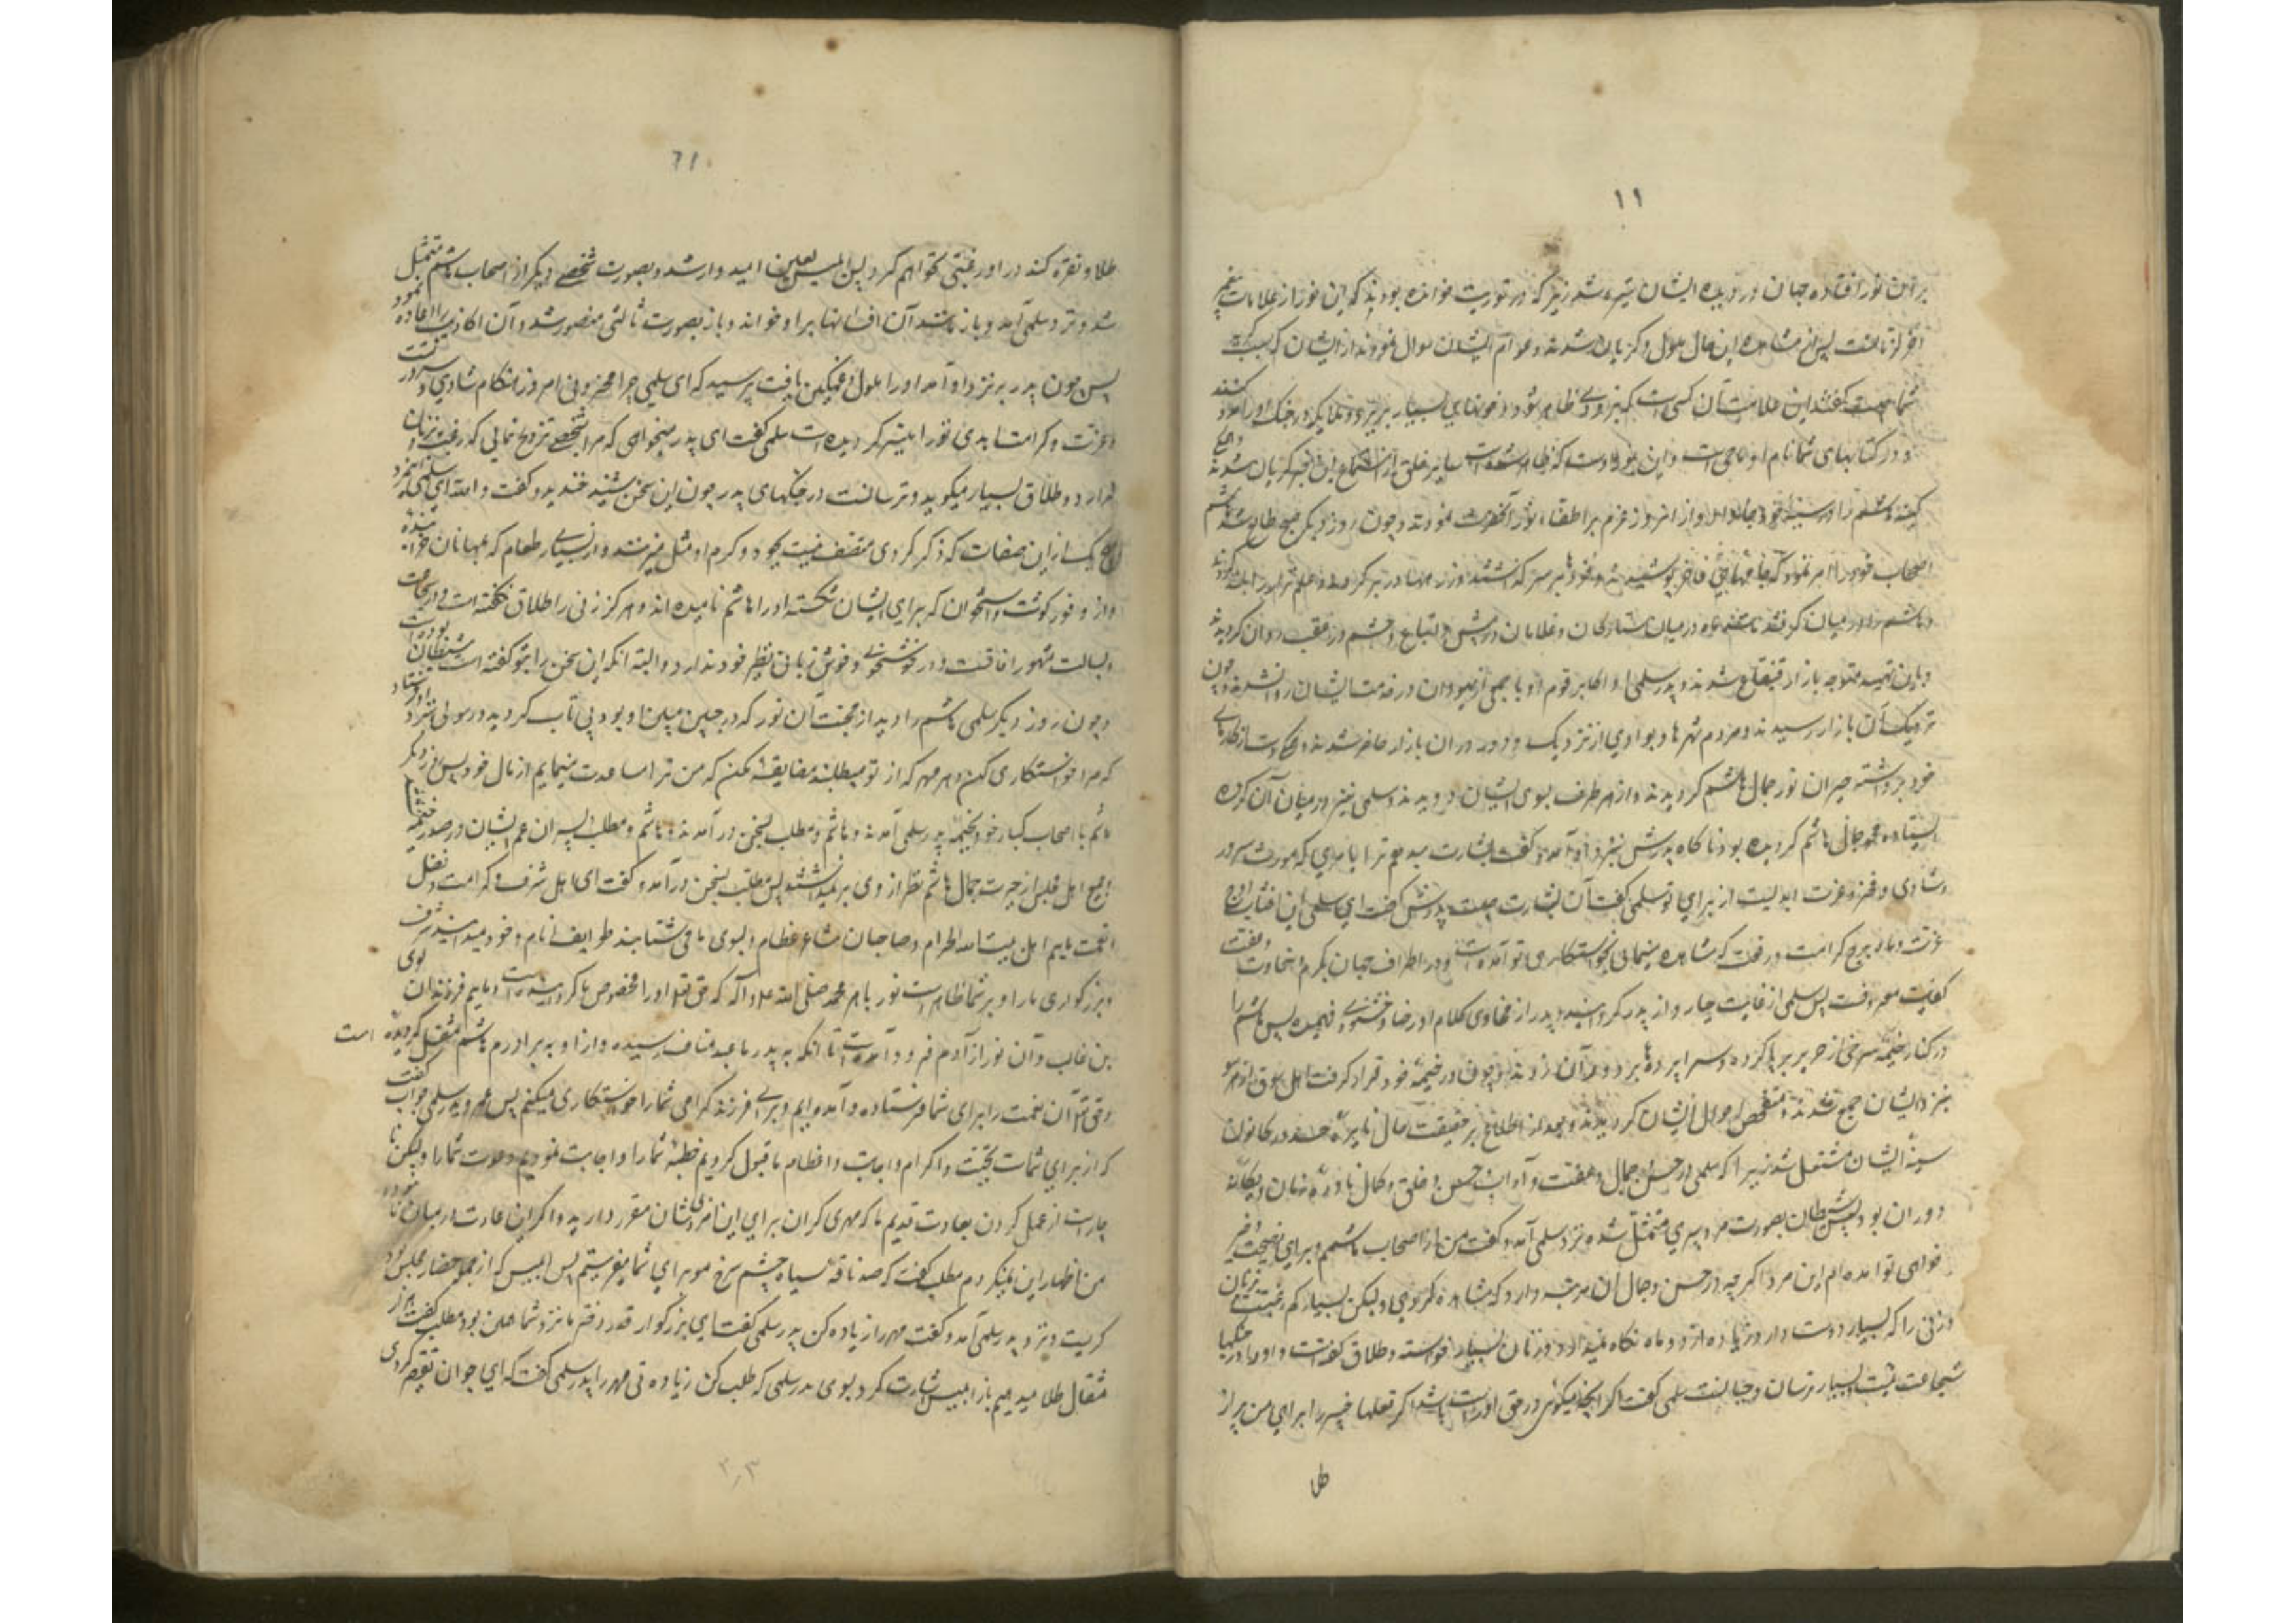 ۱۱
بر آن نور افتاده جهان در دیده ایشان تیره شد زیرا که در توریت خوانده بودند که این نور از علامات پیغمبر
آخر الزمانست پس از مشاهده این حال ملول و گریان شدند و عوام ایشان سوال نمودند از ایشان که سبب گریه
شما چیست گفتند این علامت آن کسی است که بزودی ظاهر شود و خونهای بسیار بریزد و ملایکه در جنگ او را امداد کنند
و در کتابهای شما نام او ماحی است و این نور اوست که ظاهر شده است سایر خلق از استماع این خبر گریان شدند و همگی
کینه هاشم را در سینه خود جا دادند و از آن روز عزم بر اطفاء نور آنحضرت نمودند و چون روز دیگر صبح طالع شد هاشم
اصحاب خود را امر نمود که جامهای فاخر پوشیدند و خودها بر سر گذاشتند و زرهها در بر کردند و علم نزار را بلند کردند
و هاشم را در میان گرفتند مانند ماه در میان ستارگان و غلامان در پیش و اتباع و حشم در عقب روان گردیدند
و باین تهیه متوجه بازار قینقاع شدند و پدر سلمی و اکابر قوم او با جمعی از یهودان در خدمت ایشان روان شدند و چون
نزدیک آن بازار رسیدند و مردم شهرها و بوادی از نزدیک و دور در آن بازار حاضر شدند و همگی دست از کارهای
خود برداشته حیران نور جمال هاشم گردیدند و از هر طرف بسوی ایشان دویدند و سلمی نیز در میان آن گروه
ایستاده محو جمال هاشم گردیده بود ناگاه پدرش نزد او آمد و گفت بشارت میدهم ترا بامری که مورث سرور
و شادی و فخر و عزت ابدیست از برای تو سلمی گفت آن بشارت چیست پدرش گفت ای سلمی این آفتاب اوج
عزت و ماه برج کرامت و رفعت که مشاهده مینمائی بخواستکاری تو آمده است و در اطراف جهان بکرم و سخاوت و عفت
کفایت معروفست پس سلمی از غایت حیا رو از پدر گردانید و پدر از فحاوی کلام او رضا و خشنودی فهمید پس هاشم را
در کنار خیمه سرخی از حریر برپا کرده و سراپرده‌ها بر دور آن زدند و چون در خیمه خود قرار گرفت اهل سوق از هر سو
بنزد ایشان جمع شدند و متفحص احوال ایشان گردیدند و بعد از اطلاع بر حقیقت حال نایره حسد در کانون
سینه ایشان مشتعل شد زیرا که سلمی در حسن و جمال و عفت و آداب و حسن خلق و کمال نادره زمان و یگانه
دوران بود پس شیطان بصورت مرد پیری متمثل شده نزد سلمی آمد و گفت من از اصحاب هاشمم و برای نصیحت و خیر
خواهی تو آمده‌ام این مرد اگر چه در حسن و جمال آن مرتبه دارد که مشاهده کردی ولیکن بسیار کم رغبت است بزنان
و زنی را که بسیار دوست دارد زیاده از دو ماه نگاه نمیدارد و زنان بسیار خواسته و طلاق گفته است و او را در جنگها
شجاعت نیست و بسیار ترسان و جبانست سلمی گفت اگر آنچه میگوئی در حق او راست باشد اگر قلعهای خیبر را برای من پر از
طل
۱۲
طلا و نقره کند در او رغبتی نخواهم کرد پس ابلیس لعین امیدوار شد و بصورت شخصی دیگر از اصحاب هاشم متمثل
شد و نزد سلمی آمد و باز مانند آن افسانها بر او خواند و باز بصورت ثالثی متصور شد و آن اکاذیب را اعاده نمود
پس چون پدر بنزد او آمد او را ملول و غمگین یافت پرسید که ای سلمی چرا محزونی امروز هنگام شادی و سرور تست
و عزت و کرامت ابدی ترا میسر گردیده است سلمی گفت ای پدر میخواهی که مرا بشخصی تزویج نمائی که رغبت بزنان
ندارد و طلاق بسیار میگوید و ترسانست در جنگهای پدر چون این سخن شنید خندید و گفت والله ای سلمی این مرد
بهیچ یک از این صفات که ذکر کردی متصف نیست بجود و کرم او مثل میزنند و از بسیاری طعام که بمهانان خورانیده
و از وفور گوشت و استخوان که برای ایشان شکسته او را هاشم نامیده‌اند و هرگز زنی را طلاق نگفته است و در شجاعت
و بسالت مشهور آفاقست و در خوشخوئی و خوش زبانی نظیر خود ندارد و البته آنکه این سخن را بتو گفته است شیطان بوده است
و چون روز دیگر سلمی هاشم را دید از محبت آن نور که در جبین مبین او بود بی تاب گردید و رسولی نزد او فرستاد
که مرا خواستکاری کن و هر مهر که از تو میطلبند مضایقه مکن که من ترا مساعدت مینمایم از مال خود پس روز دیگر
هاشم با اصحاب کبار خود بخیمه پدر سلمی آمدند و هاشم و مطلب بسخن در آمدند و هاشم و مطلب و پسران عم ایشان در صدر خیمه نشستند
و جمیع اهل مجلس از حیرت جمال هاشم نظر از وی بر نمیداشتند پس مطلب بسخن در آمد و گفت ای اهل شرف و کرامت و فضل
و نعمت مائیم اهل بیت الله الحرام و صاحبان مشاعر عظام و بسوی ما می شتابند طوایف انام و خود میدانید شرف
و بزرگواری ما را و بر شما ظاهر است نور باهر محمد صلی الله علیه و آله که حق تعالی او را مخصوص ما گردانیده است و مائیم فرزندان لوی
بن غالب و آن نور از آدم فرود آمده است تا آنکه به پدر ما عبد مناف رسیده و از او به برادرم هاشم منتقل گردیده است
و حق تعالی آن نعمت را برای شما فرستاده و آمده‌ایم و برای فرزند گرامی شما را خواستکاری میکنیم پس عمرو پدر سلمی جواب گفت
که از برای شماست تحیت و اکرام و اجابت و اعظام ما قبول کردیم خطبه شما را و اجابت نمودیم دعوت شما را ولیکن نا
چار است از عمل کردن بعادت قدیم ما که مهری گران برای این امر ذیشان مقرر دارید و اگر این عادت در میان ما نبود
من اظهار این نمیکردم مطلب گفت که صد ناقه سیاه چشم سرخ مو برای شما میفرستیم پس ابلیس که از جمله حضار مجلس بود
گریست و نزد پدر سلمی آمد و گفت مهر را زیاده کن پدر سلمی گفت ای بزرگوار قدر دختر ما نزد شما همین بود مطلب گفت هزار
مثقال طلا میدهیم باز ابلیس اشارت کرد بسوی پدر سلمی که طلب کن زیادتی مهر را پدر سلمی گفت که ای جوان تقصیر کردی